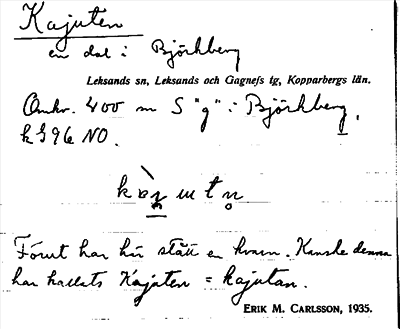 Kajuten
en del i Björkberg
Leksands sn, Leksands och Gagnefs tg, Kopparbergs län.
Omkr. 400 m S "g" i Björkberg,
k G 96 NO.
Förut har här stått en kvarn. Kanske denna
har kallats Kajuten = kajutan.
ERIK M. CARLSSON, 1935.